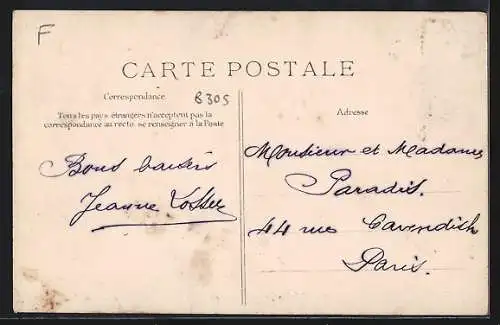 F
CARTE POSTALE
Correspondance
B305
Tous les pays étrangers n'acceptent pas la
correspondance au recto, se renseigner à la Poste
Bons baisers
Jeanne
Adresse
Monsieur et Madame
Paradis.
44 rue Cavendish
Paris.